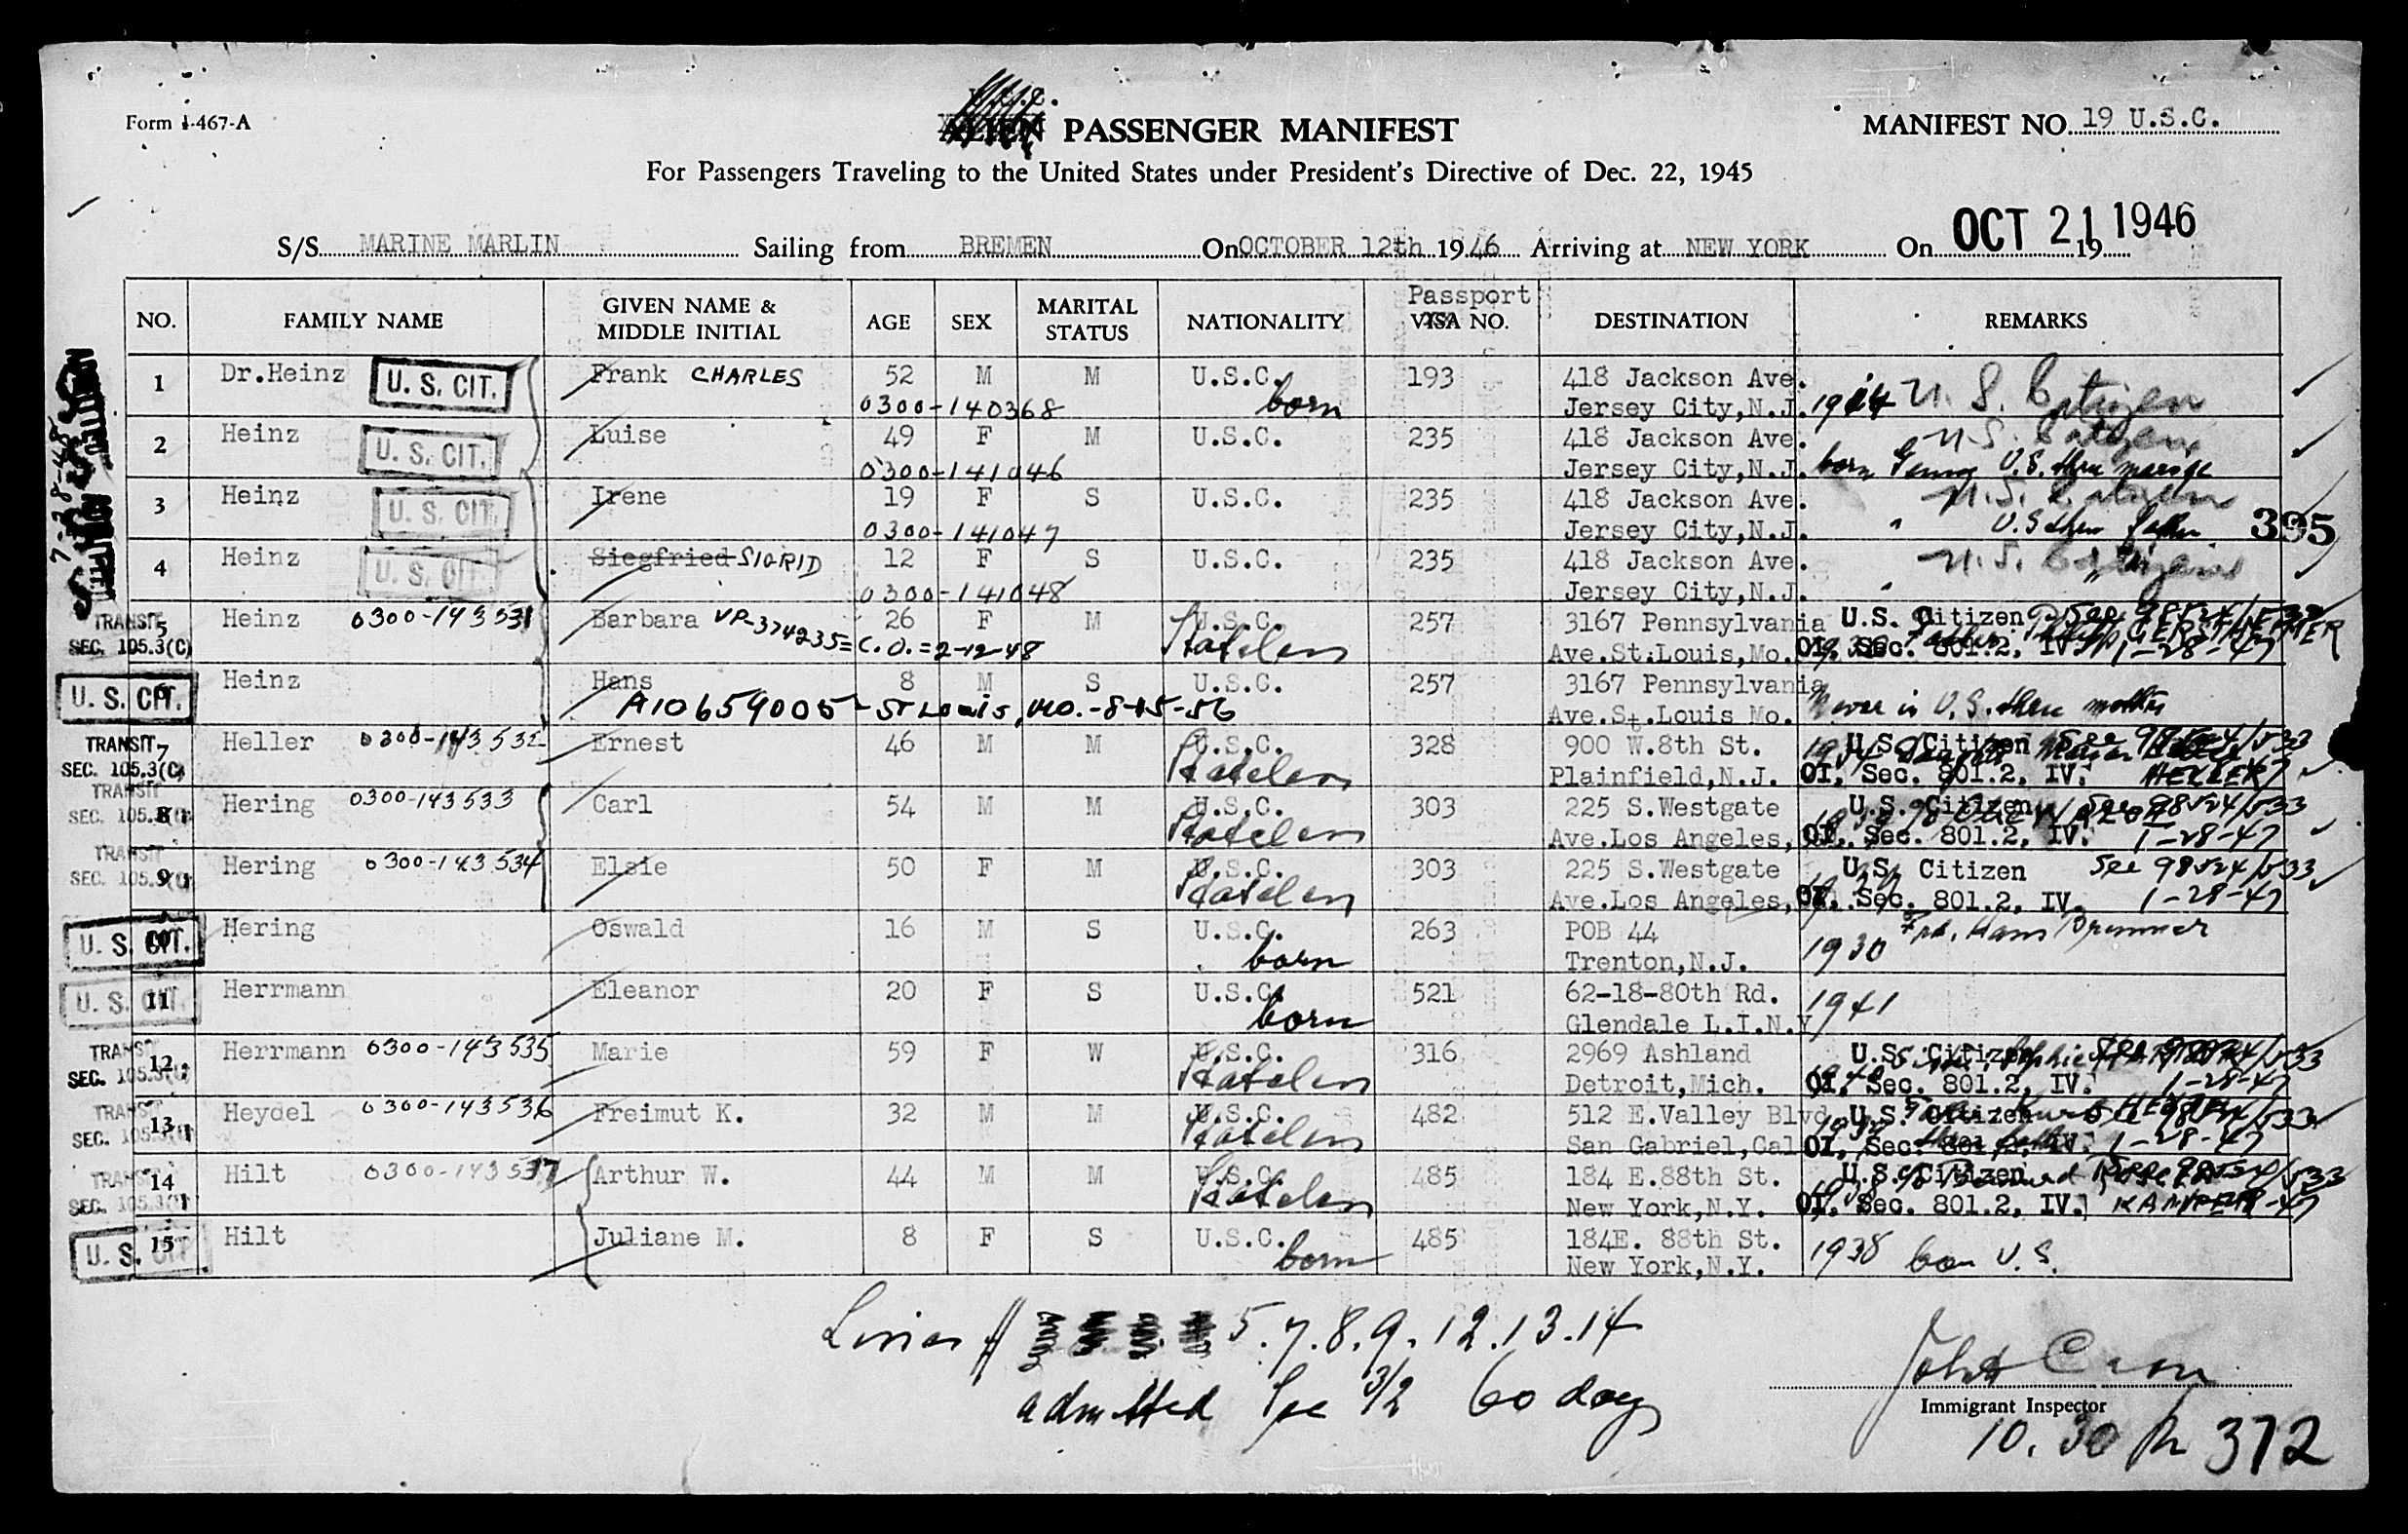 Form I-467-A
PASSENGER MANIFEST
MANIFEST NO. 19 U.S.C.
For Passengers Traveling to the United States under President's Directive of Dec. 22, 1945
S/S MARINE MARLIN Sailing from BREMEN On OCTOBER 12th 1946 Arriving at NEW YORK On OCT 21 1946 19
NO. FAMILY NAME GIVEN NAME & MIDDLE INITIAL AGE SEX MARITAL STATUS NATIONALITY Passport VISA NO. DESTINATION REMARKS
1 Dr.Heinz U. S. CIT. Frank CHARLES 52 M M U.S.C. 193 418 Jackson Ave. U. S. Citizen
0300-140368 born Jersey City,N.J.
2 Heinz U. S. CIT. Luise 49 F M U.S.C. 235 418 Jackson Ave. U.S. Citizen
0300-141046 Jersey City,N.J. born U.S. thru
3 Heinz U. S. CIT. Irene 19 F S U.S.C. 235 418 Jackson Ave. U.S. Citizen
0300-141047 Jersey City,N.J. " 395
4 Heinz U. S. CIT. Siegfried SIGRID 12 F S U.S.C. 235 418 Jackson Ave. U.S. Citizen
0300-141048 Jersey City,N.J. "
TRANSIT 5 Heinz 0300-143531 Barbara VP-374235=C.O.=2-12-48 26 F M U.S.C. 257 3167 Pennsylvania U.S. Citizen
SEC. 105.3(C) Stateless Ave.St.Louis,Mo. OI. Sec. 801.2, IV. 1-28-47
U. S. CIT. 6 Heinz Hans 8 M S U.S.C. 257 3167 Pennsylvania
A10659005-St Louis, MO.-8-15-56 Ave.St.Louis Mo. Never in U.S. thru mother
TRANSIT 7 Heller 0300-143532 Ernest 46 M M U.S.C. 328 900 W.8th St. U.S. Citizen See 98524/533
SEC. 105.3(C) Stateless Plainfield,N.J. OI. Sec. 801.2, IV. HELLER
TRANSIT 8 Hering 0300-143533 Carl 54 M M U.S.C. 303 225 S.Westgate U.S. Citizen See 98524/533
SEC. 105.3(C) Stateless Ave.Los Angeles, OI. Sec. 801.2, IV. 1-28-47
TRANSIT 9 Hering 0300-143534 Elsie 50 F M U.S.C. 303 225 S.Westgate U.S. Citizen See 98524/533
SEC. 105.3(C) Stateless Ave.Los Angeles, OI. Sec. 801.2, IV. 1-28-47
U. S. CIT. 10 Hering Oswald 16 M S U.S.C. 263 POB 44
born Trenton,N.J. 1930
U. S. CIT. 11 Herrmann Eleanor 20 F S U.S.C. 521 62-18-80th Rd.
born Glendale L.I.N.Y 1941
TRANSIT 12 Herrmann 0300-143535 Marie 59 F W U.S.C. 316 2969 Ashland U.S. Citizen
SEC. 105.3(C) Stateless Detroit,Mich. OI. Sec. 801.2, IV. 1-28-47
TRANSIT 13 Heydel 0300-143536 Freimut K. 32 M M U.S.C. 482 512 E.Valley Blvd. U.S. Citizen
SEC. 105.3(C) Stateless San Gabriel,Cal OI. Sec. 801.2, IV. 1-28-47
TRANSIT 14 Hilt 0300-143537 Arthur W. 44 M M U.S.C. 485 184 E.88th St. U.S. Citizen
SEC. 105.3(C) Stateless New York,N.Y. OI. Sec. 801.2, IV.
U. S. CIT. 15 Hilt Juliane M. 8 F S U.S.C. 485 184E. 88th St.
born New York,N.Y. 1938 born U.S.
Lines # 5.7.8.9.12.13.14
admitted Sec 3/2 60 days
Immigrant Inspector
10.30 372